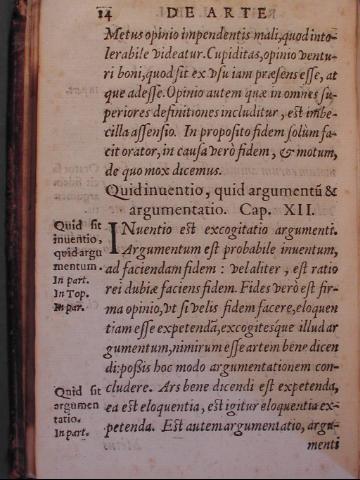 14 DE ARTE
Metus opinio impendentis mali, quod into-
lerabile videatur. Cupiditas, opinio ventu-
ri boni, quod sit ex vsu iam præsens esse, at
que adesse. Opinio autem quæ in omnes su-
periores definitiones includitur, est imbe-
cilla assensio. In proposito fidem solùm fa-
cit orator, in causa verò fidem, & motum,
de quo mox dicemus.
Quid inuentio, quid argumentũ &
argumentatio. Cap. XII.
Quid sit
inuentio,
quid argu
mentum.
In part.
In Top.
In par.
INuentio est excogitatio argumenti.
Argumentum est probabile inuentum,
ad faciendam fidem: vel aliter, est ratio
rei dubiæ faciens fidem. Fides verò est fir-
ma opinio, vt si velis fidem facere, eloquen
tiam esse expetendā, excogitesque illud ar
gumentum, nimirum esse artem bene dicen
di: poßis hoc modo argumentationem con-
cludere. Ars bene dicendi est expetenda,
ea est eloquentia, est igitur eloquentia ex-
petenda. Est autem argumentatio, argu-
menti
Quid sit
argumen
tatio.
In part.